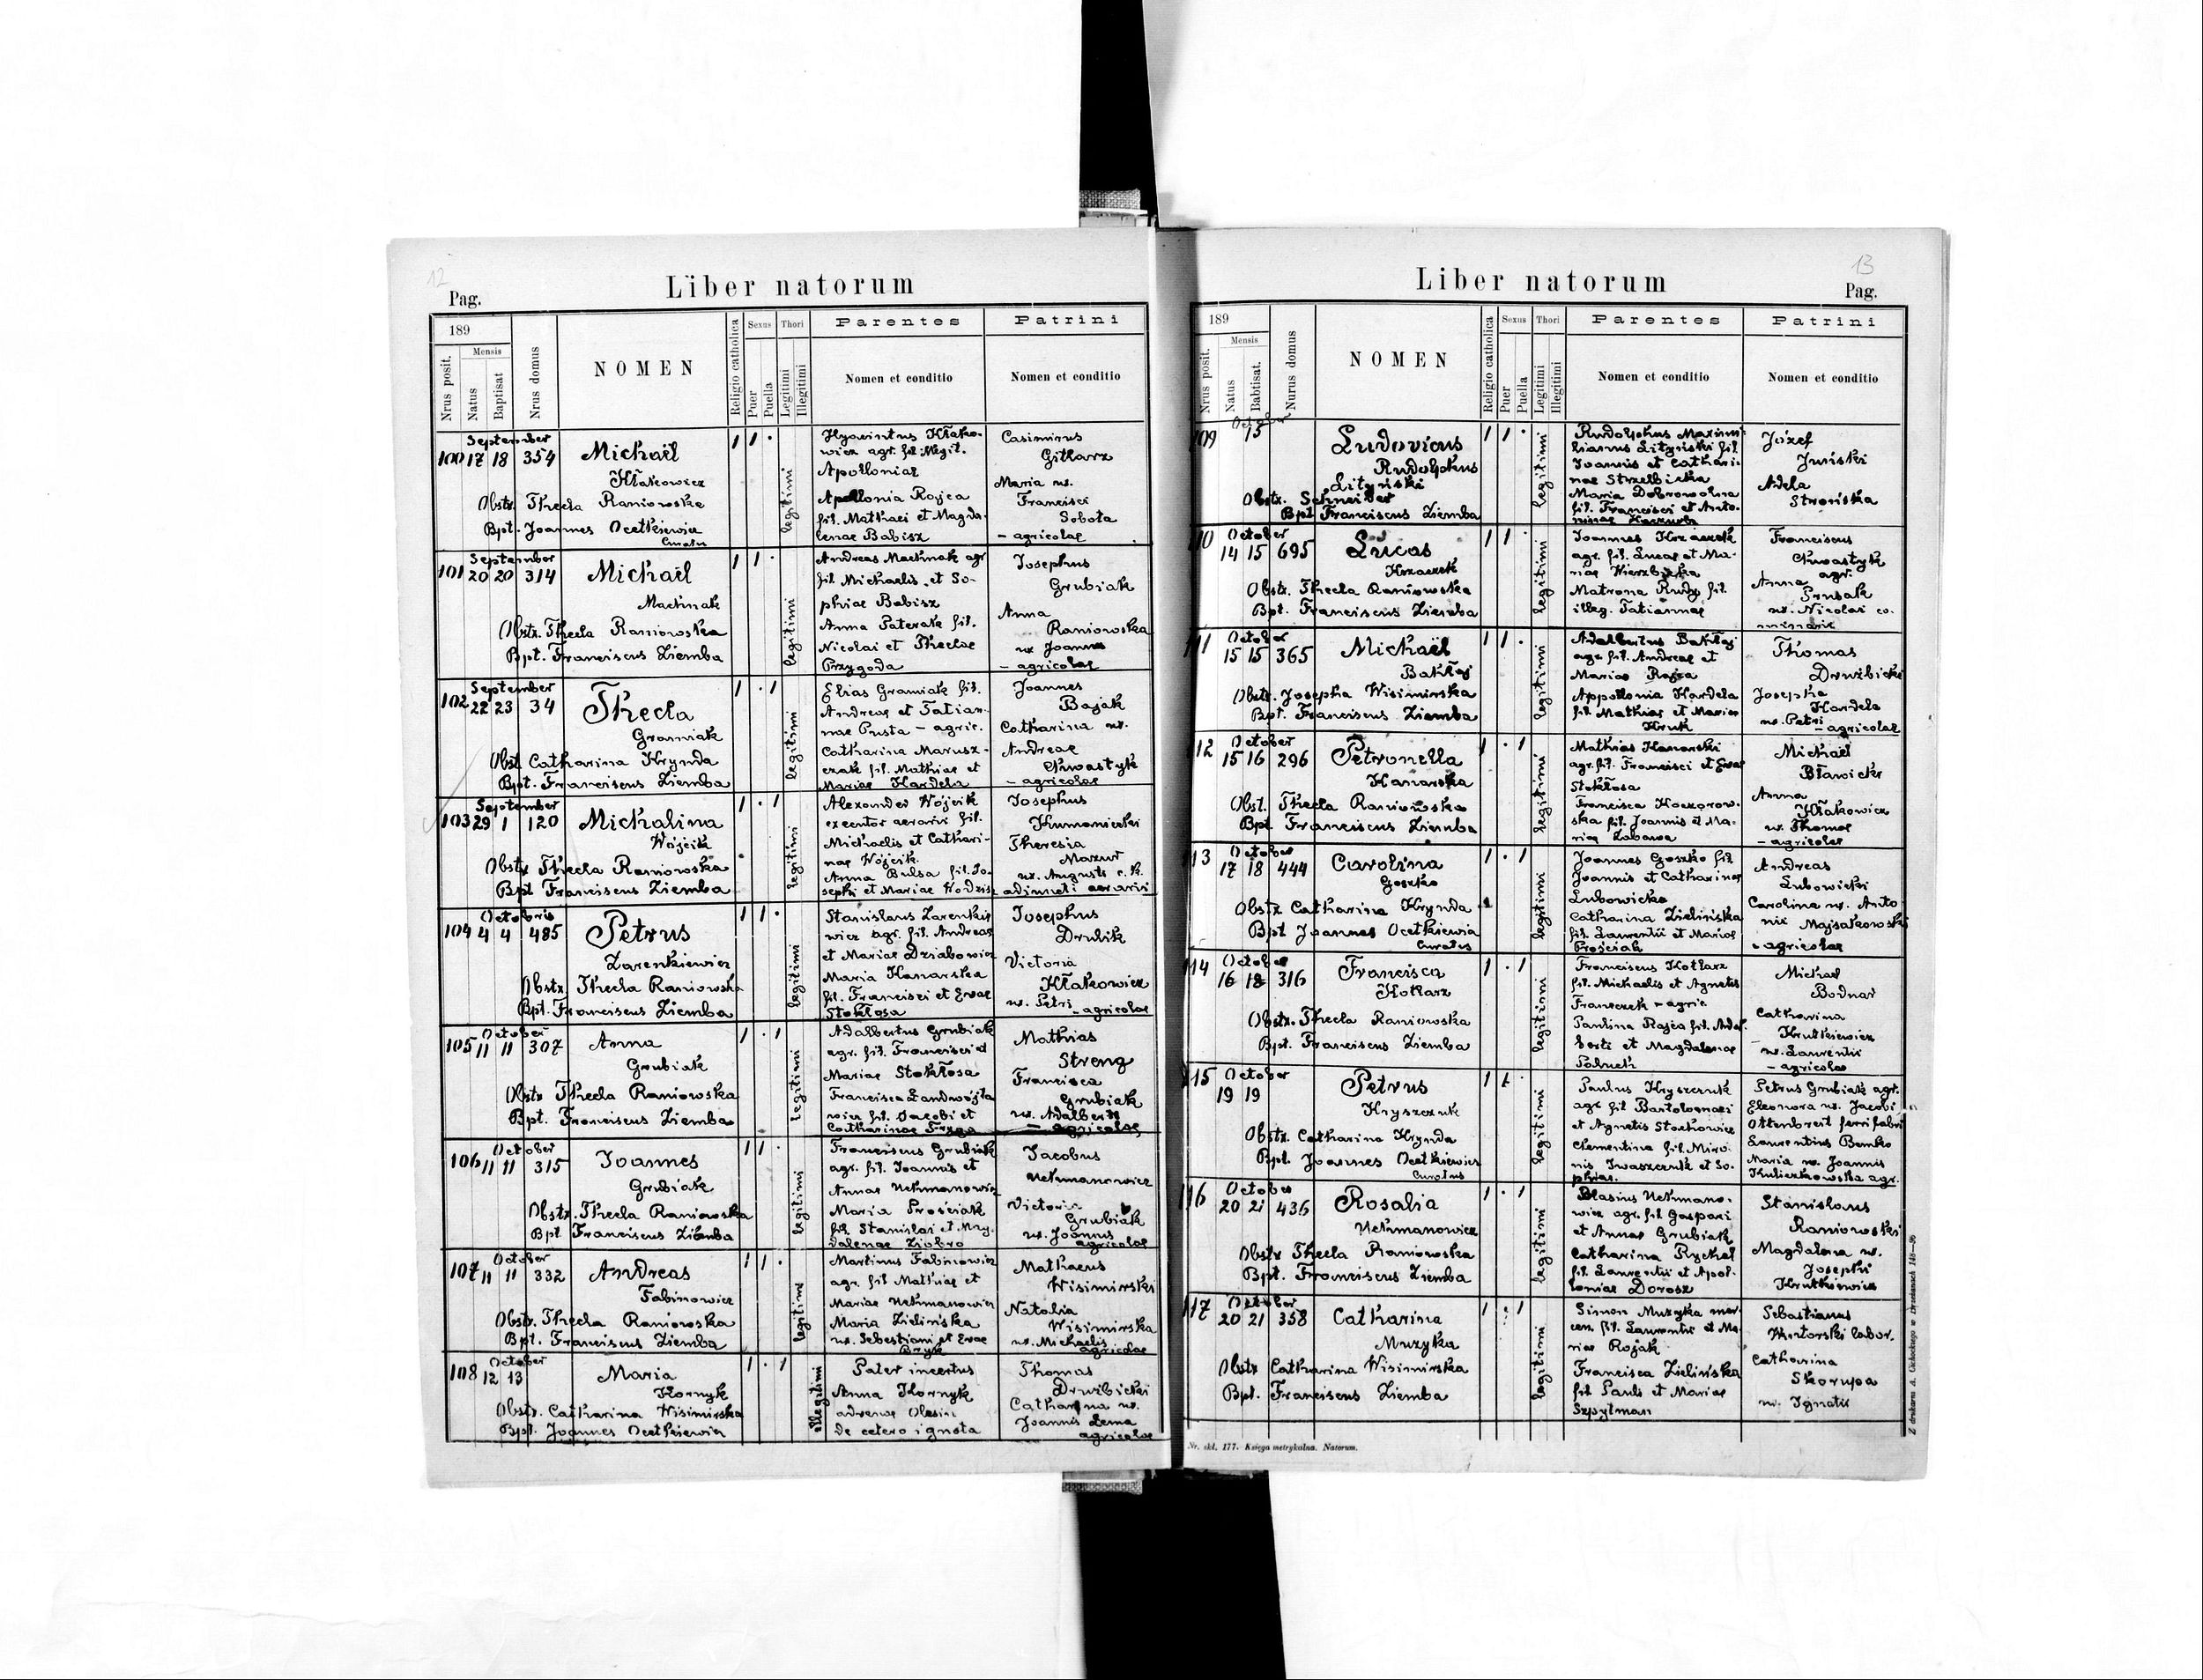 12
Pag.
Liber natorum
189
Mensis
Nrus posit.
Natus
Baptisat
Nrus domus
NOMEN
Religio catholica
Sexus
Puer
Puella
Thori
Legitimi
Illegitimi
Parentes
Nomen et conditio
Patrini
Nomen et conditio
September
100 17 18 354
Michaël
Kłakowicz
Obstr. Thecla Raniowska
Bpt. Joannes Ocetkiewicz
Curatus
1 1 .
legitimi
Hyacintus Kłako-
wicz agr. fil. illegit.
Apolloniae
Apollonia Rojca
fil. Mathaei et Magda-
lenae Babisz
Casimirus
Gitlarz
Maria ux.
Francisci
Sobota
- agricolae
September
101 20 20 314
Michaël
Machnak
Obstr. Thecla Raniowska
Bpt. Franciscus Ziemba
1 1 .
legitimi
Andreas Machnak agr
fil Michaelis et So-
phiae Babisz
Anna Paterak fil.
Nicolai et Theclae
Przygoda
Josephus
Grubiak
Anna
Raniowska
ux Joannis
- agricolae
September
102 22 23 34
Thecla
Graniak
Obst. Catharina Krynda
Bpt. Franciscus Ziemba
1 . 1
legitimi
Elias Graniak fil.
Andreae et Tatian-
nae Pusta - agric.
Catharina Marusz-
czak fil. Mathiae et
Mariae Hardela
Joannes
Bajak
Catharina ux.
Andreae
Chwastyk
- agricolae
September
103 29 1 120
Michalina
Wójcik
Obstr Thecla Raniowska
Bpt Franciscus Ziemba
1 . 1
legitimi
Alexander Wójcik
executor aerarii fil.
Michaelis et Cathari-
nae Wójcik
Anna Bulsa fil. Jo-
sephi et Mariae
Josephus
Kumaniecki
Theresia
Mazur
ux. Augusti c. k.
adiuncti aerarii
Octobris
104 4 4 485
Petrus
Zarenkiewicz
Obstr. Thecla Raniowska
Bpt. Franciscus Ziemba
1 1 .
legitimi
Stanislaus Zarenkie
wicz agr. fil. Andreae
et Mariae Dziabowicz
Maria Kanarska
fil. Francisci et Evae
Stokłosa
Josephus
Drulik
Victoria
Kłakowicz
ux. Petri
- agricolae
October
105 11 11 307
Anna
Grubiak
Obstr Thecla Raniowska
Bpt. Franciscus Ziemba
1 . 1
legitimi
Adalbertus Grubiak
agr. fil. Francisci et
Mariae Stokłosa
Francisca Landwójto
wicz fil. Jacobi et
Catharinae Fryga
Mathias
Streng
Francisca
Grubiak
ux. Adalberti
- agricolae
October
106 11 11 315
Joannes
Grubiak
Obstr. Thecla Raniowska
Bpt. Franciscus Ziemba
1 1 .
Franciscus Grubiak
agr. fil. Joannis et
Annae Uchmanowicz
Maria Prościak
fil. Stanislai et Mag-
dalenae Ziobro
Jacobus
Uchmanowicz
Victoria
Grubiak
ux. Joannis
agricolae
October
107 11 11 332
Andreas
Fabinowicz
Obstr. Thecla Raniowska
Bpt. Franciscus Ziemba
1 1 .
legitimi
Martinus Fabinowicz
agr. fil Mathiae et
Mariae Uchmanowicz
Maria Zielińska
ux. Sebestiani et Evae
Bryk
Mathaeus
Wisimirski
Natalia
Wisimirska
ux. Michaelis
agricolae
October
108 12 13
Maria
Kornyk
Obstr. Catharina Wisimirska
Bpt. Joannes Ocetkiewicz
1 . 1
illegitimi
Pater incertus
Anna Kornyk
advenae Olesin
de cetero ignota
Thomas
Drużbicki
Catharina ux.
Joannis Lema
agricolae
13
Pag.
Liber natorum
189
Mensis
Nrus posit.
Natus
Babtisat.
Nurus domus
NOMEN
Religio catholica
Sexus
Puer
Puella
Thori
Legitimi
Illegitimi
Parentes
Nomen et conditio
Patrini
Nomen et conditio
October
109 15
Ludovicus
Rudolphus
Lityński
Obstr. Schneider
Bpt Franciscus Ziemba
1 1 .
legitimi
Rudolphus Maximi-
lianus Lityński fil
Joannis et Cathari-
nae Strzelbicka
Maria Dobrowolna
fil. Francisci et Anto-
ninae
Józef
Juński
Adela
Strońska
October
110 14 15 695
Lucas
Krzaczek
Obstr. Thecla Raniowska
Bpt. Franciscus Ziemba
1 1 .
legitimi
Joannes Krzaczek
agr. fil. Lucae et Ma-
riae Wierzbicka
Matrona Rudy fil.
illeg. Tatiannae
Franciscus
Chwastyk
agr.
Anna
Prusak
ux. Nicolai co-
October
111 15 15 365
Michaël
Bakłaj
Obstr. Josepha Wisimirska
Bpt. Franciscus Ziemba
1 1 .
legitimi
Adalbertus Bakłaj
agr. fil. Andreae et
Mariae Rojca
Appollonia Hardela
fil Mathiae et Mariae
Kruk
Thomas
Drużbicki
Josepha
Hardela
ux. Petri
- agricolae
October
112 15 16 296
Petronella
Kanarska
Obst. Thecla Raniowska
Bpt Franciscus Ziemba
1 . 1
legitimi
Mathias Kanarski
agr. fil. Francisci et Evae
Stokłosa
Francisca Kaczorow-
ska fil. Joannis et Ma-
riae Zabawa
Michael
Bławicki
Anna
Kłakowicz
ux. Thomae
- agricolae
October
113 17 18 444
Carolina
Goszko
Obstr Catharina Krynda
Bpt Joannes Ocetkiewicz
Curatus
1 . 1
legitimi
Joannes Goszko fil
Joannis et Catharinae
Lubowicka
Catharina Zielińska
fil. Laurentii et Mariae
Prościak
Andreas
Lubowicki
Carolina ux. Anto
nii Majsakowski
- agricolae
October
114 16 18 316
Francisca
Kotlarz
Obstr. Thecla Raniowska
Bpt. Franciscus Ziemba
1 . 1
legitimi
Franciscus Kotlarz
fil. Michaelis et Agnetis
Franczek - agric.
Paulina Rojca fil. Adal-
berti et Magdalenae
Michael
Bodnar
Catharina
Krutkiewicz
ux. Laurentii
- agricolae
October
115 19 19
Petrus
Kryszczuk
Obstr. Catharina Krynda
Bpt. Joannes Ocetkiewicz
Curatus
1 1 .
legitimi
Paulus Kryszczuk
agr fil Bartolomaei
et Agnetis Stachowicz
Clementina fil. Miro-
nis Iwaszczuk et So-
phiae.
Petrus Grubiak agr.
Eleonora ux. Jacobi
Ottenbreit ferrifabri
Laurentius Bemko
Maria ux. Joannis
Kuliczkowska agr.
October
116 20 21 436
Rosalia
Uchmanowicz
Obstr Thecla Raniowska
Bpt. Franciscus Ziemba
1 . 1
legitimi
Blasius Uchmano-
wicz agr. fil Gaspari
et Annae Grubiak
Catharina Rychel
fil. Laurentii et Apol-
loniae Dorosz
Stanislaus
Raniowski
Magdalena ux.
Josephi
Krutkiewicz
October
117 20 21 358
Catharina
Muzyka
Obstr Catharina Wisimirska
Bpt. Franciscus Ziemba
1 . 1
legitimi
Simon Muzyka mer-
cen. fil. Laurentii et Ma-
riae Rojak
Francisca Zielińska
fil Pauli et Mariae
Szpytman
Sebastianus
Wintorski labor.
Catharina
Skorupa
ux. Ignatii
Nr. skł. 177. Księga metrykalna. Natorum.
Z drukarni A. Cichockiego w Brzeżanach 148—96